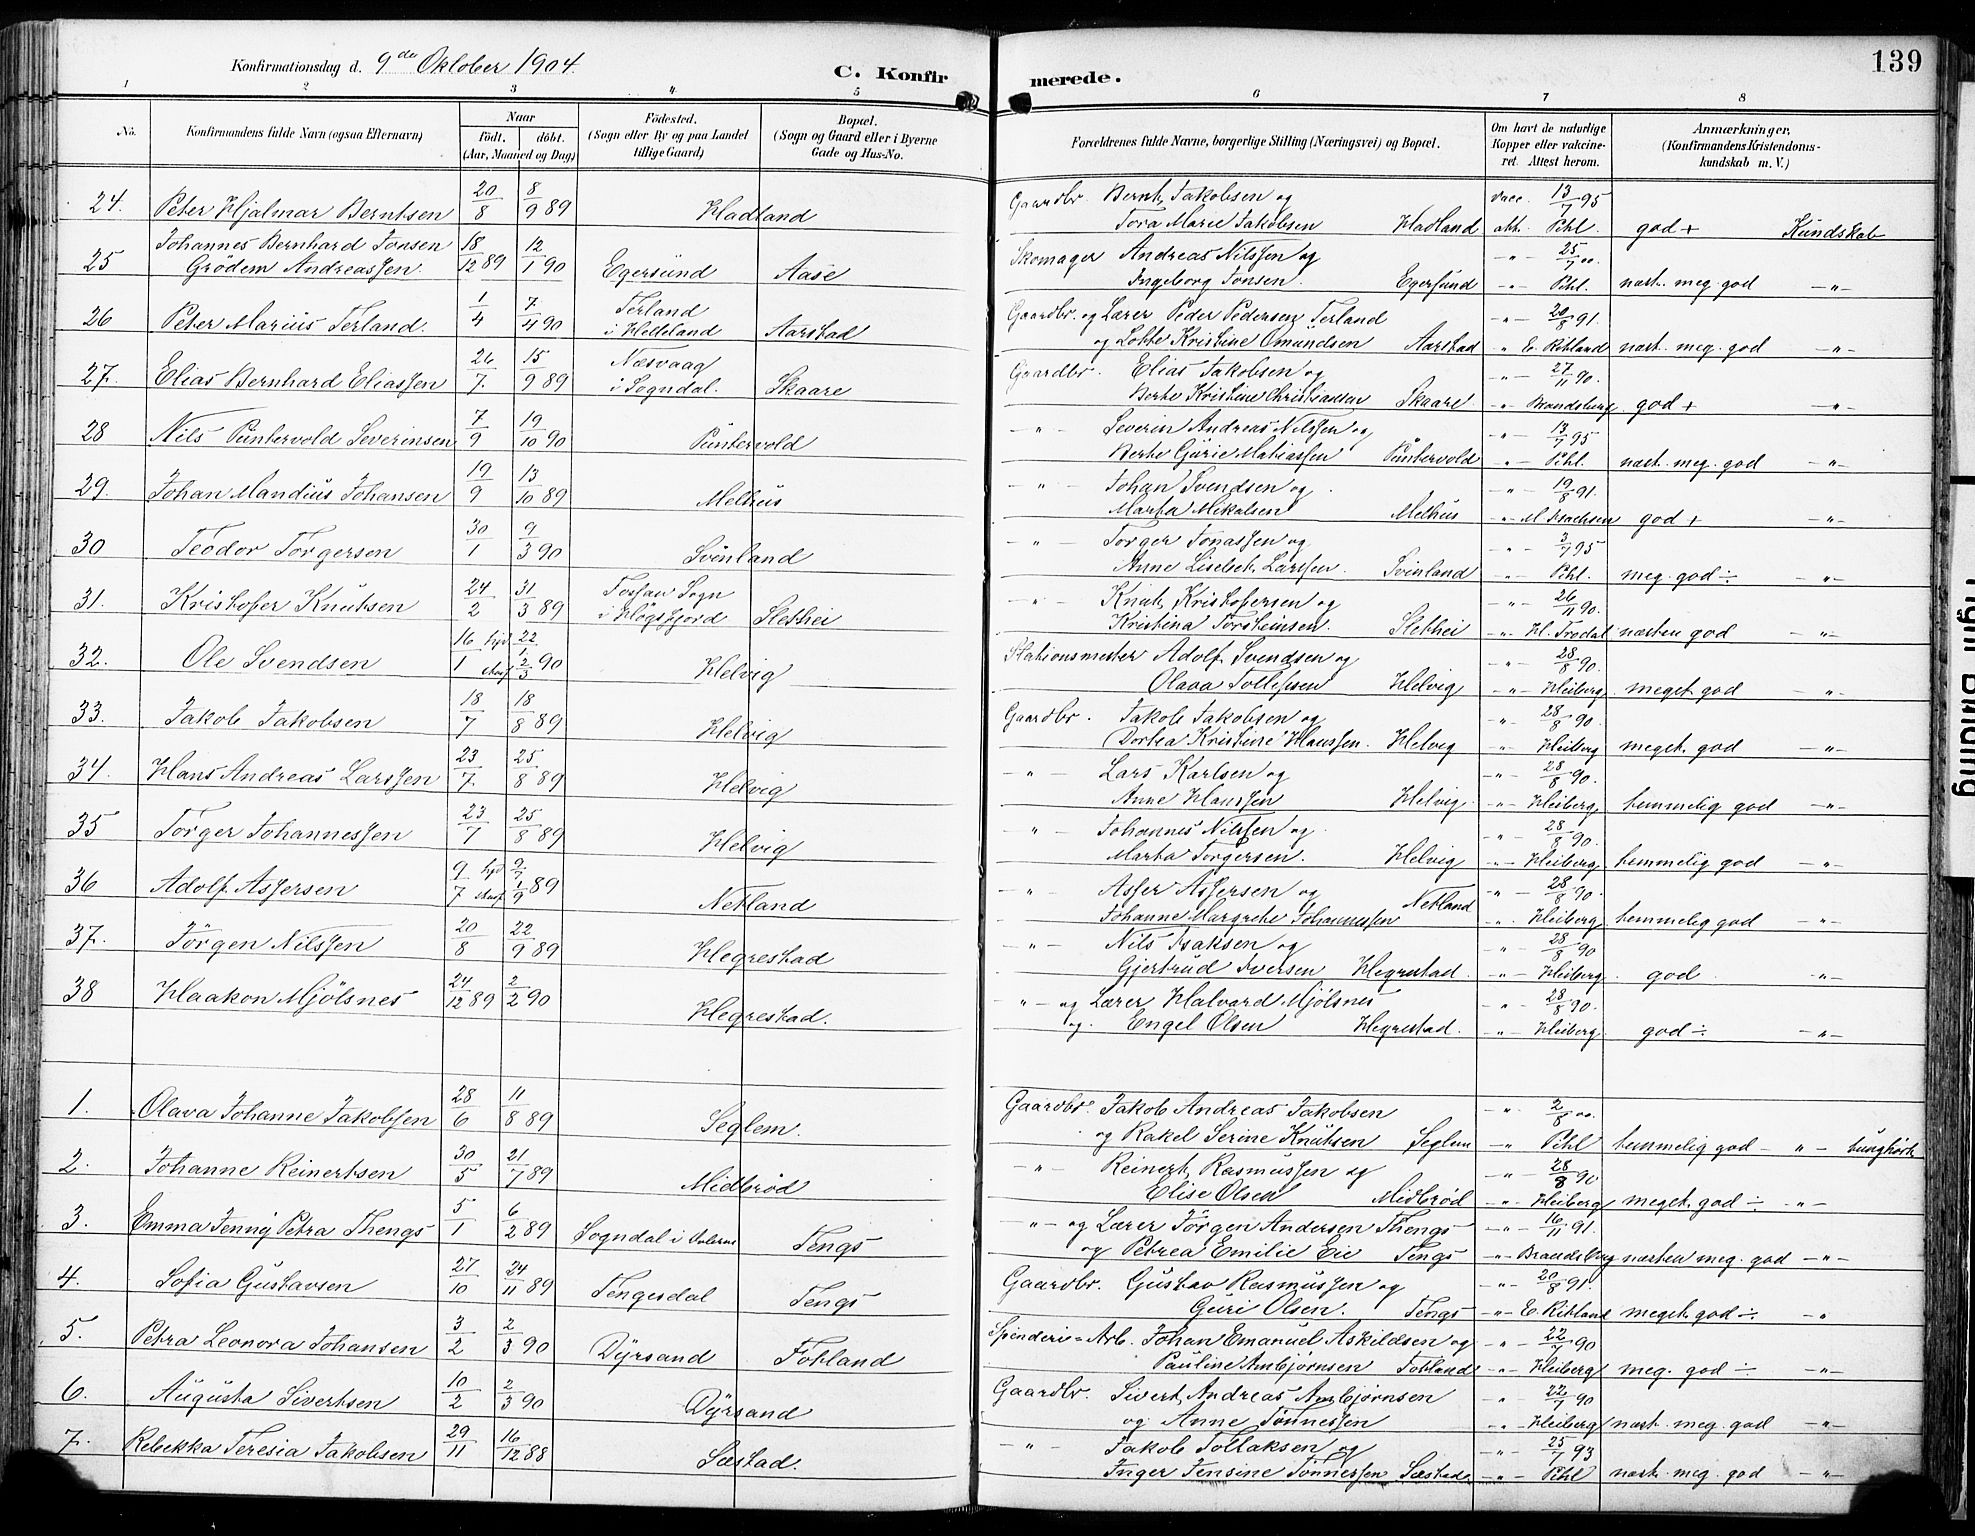 139
Konfirmationsdag d. 9de Oktober 1904.
C. Konfirmerede.
1 2 3 4 5 6 7 8
No.
Konfirmandens fulde Navn (ogsaa Efternavn)
Naar
født. døbt.
(Aar, Maaned og Dag)
Fødested.
(Sogn eller By og paa Landet
tillige Gaard)
Bopæl.
(Sogn og Gaard eller i Byerne
Gade og Hus-No.
Forældrenes fulde Navne, borgerlige Stilling (Næringsvei) og Bopæl.
Om havt de naturlige
Kopper eller vakcine-
ret. Attest herom.
Anmærkninger,
(Konfirmandens Kristendoms-
kundskab m. V.)
24. Peter Hjalmar Berntsen 20/8 8/9 89 Hadland Gaardbr. Bernt Jakobsen og vacc. 13/7 95
Tora Marie Jakobsen Hadland att. Pihl. god + Kundskab
25 Johannes Bernhard Jonsen 18/12 89 12/1 90 Skomager Andreas Nilssen og -"- 25/7 00.
Grødem Andreassen. Egersund Aase Ingeborg Jonsen. Egersund -"- Pihl. næst. meg. god -"-
26 Peter Marius Terland. 1/4 7/4 90 Terland Gaardbr. og Lærer Peder Pedersen Terland -"- 20/8 91.
i Hetland Aarstad og Lotte Kristine Omundsen Aarstad " E. Ritland næst. meg. god -"-
27. Elias Bernhard Eliassen 26/7 15/9 89 Næsvaag Gaardbr. Elias Jakobsen og -"- 27/11 90.
i Sogndal. Skaare Berte Kristine Christiansen Skaare -"- Brandsberg god + -"-
28 Nils Puntervold Severinsen 7/9 19/10 90 Puntervold -"- Severin Andreas Nilssen og -"- 13/7 95
Berte Gurie Matiassen Puntervold -"- Pihl. næst. meg. god -"-
29. Johan Mandius Johansen 19/9 13/10 89 Melhus -"- Johan Svendsen og -"- 19/8 91.
Marta Mikalsen Melhus -"- M Isachsen god + -"-
30 Teodor Torgersen 30/1 9/3 90 Svinland -"- Torger Jonassen og -"- 3/7 95
Anne Lisebet Larssen. Svinland -"- Pihl. meg. god ÷ -"-
31. Kristofer Knutsen 24/2 31/3 89 Fossan Sogn -"- Knut Kristofersen og -"- 26/11 90.
i Høgsfjord Slettei Kristina Torsteinsen. Slettei -"- H. Tredal næsten god -"-
32. Ole Svendsen 16/1 hjd. 22/1 2/3 90 Helvig Stationsmester Adolf Svendsen og -"- 28/8 90.
Olava Tollefsen Helvig -"- Heiberg meget god -"-
33. Jakob Jakobsen 18/7 18/8 89 Helvig Gaardbr. Jakob Jakobsen og -"- 28/8 90.
Dortea Kristine Hanssen. Helvig -"- Heiberg meget god -"-
34. Hans Andreas Larssen 23/7. 25/8 89 Helvig -"- Lars Karlsen og -"- 28/8 90.
Anne Hanssen Helvig. -"- Heiberg temmelig god -"-
35 Torger Johannessen 23/7 25/8 89 Helvig -"- Johannes Nilssen og -"- 28/8 90.
Marta Torgersen. Helvig -"- Heiberg temmelig god -"-
36 Adolf Assersen 9/7 hjd 9/7 1/9 89 Netland -"- Asser Assersen og Netland -"- 28/8 90.
Johanne Margrethe Johannessen -"- Heiberg temmelig god -"-
37. Jörgen Nilssen 20/8 22/9 89 Hegrestad -"- Nils Isaksen og -"- 28/8 90
Gjertrud Iversen Hegrestad. -"- Heiberg. god. -"-
38 Haakon Mjølsnes 24/12 89 2/2 90 Hegrestad. -"- og Lærer Halvard Mjølsnes -"- 28/8 90.
og. Engel Olsen Hegrestad. -"- Heiberg god ÷ -"-
1. Olava Johanne Jakobsen 28/6 11/8 89 Seglem. Gaardbr. Jakob Andreas Jakobsen -"- 2/8 00.
og Rakel Serine Knutsen Seglem -"- Pihl temmelig god -"- tunghørt
2. Johanne Reinertsen 30/5 21/7 89 Midbrød -"- Reinert Rasmussen og -"- 28/8 90
Elise Olsen Midbrød -"- Heiberg meget god ÷ -"-
3. Emma Jenny Petra Thengs 5/1 6/2 89 Sogndal i Dalerne Tengs -"- og Lærer Jörgen Andersen Thengs -"- 16/11 91.
og Petrea Emilie Eie Tengs -"- Brandsberg næsten meg. god -"-
4. Sofia Gustavsen 27/10 24/11 89 Tengesdal Tengs Gaardbr. Gustav Rasmussen og -"- 20/8 91.
Guri Olsen. Tengs -"- E. Ritland meget god ÷ "
5. Petra Leonora Johansen 3/2 2/3 90 Dyrsand Totland Spinderi-Arb. Johan Emanuel Askildsen og -"- 22/7 90
Pauline Ambjørnsen Totland -"- Heiberg meg. god ÷ -"-
6. Augusta Sivertsen 10/2 2/3 90 Dyrsand Gaardbr. Sivert Andreas Ambjørnsen -"- 22/7 90
og Anne Tønnessen -"- Heiberg næst. meg. god -"-
7. Rebekka Teresia Jakobsen 29/11 16/12 88 Sæstad. -"- Jakob Tollaksen og -"- 25/7 93
Inger Jensine Tønnessen Sæstad -"- Pihl næst. meg. god -"-